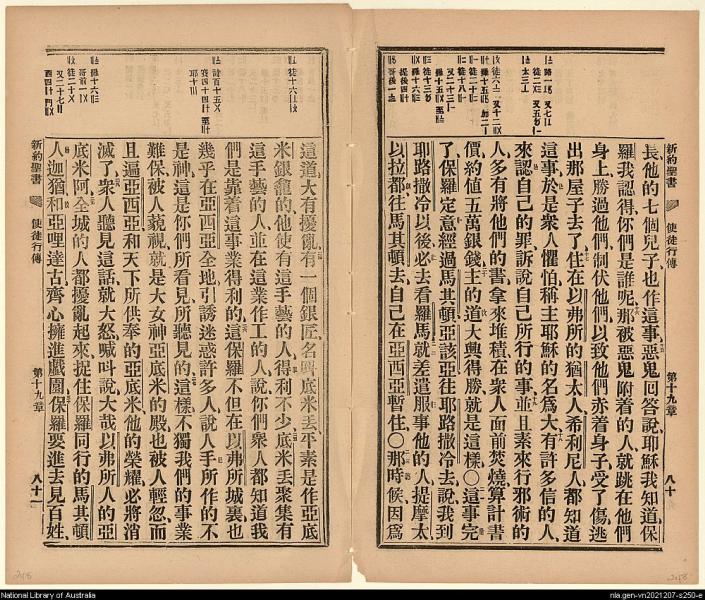 新約聖書
使徒行傳
第十九章
八十
長他的七個兒子也作這事惡鬼回答說耶穌我知道保
羅我認得你們是誰呢那被惡鬼附着的人就跳在他們
身上勝過他們制伏他們以致他們赤着身子受了傷逃
出那屋子去了住在以弗所的猶太人希利尼人都知道
這事於是衆人懼怕稱主耶穌的名爲大有許多信的人
來認自己的罪訴說自己所行的事並且素來行邪術的
人多有將他們的書拿來堆積在衆人面前焚燒算計書
價約値五萬銀錢主的道大興得勝就是這樣〇這事完
了保羅定意經過馬其頓亞該亞往耶路撒冷去說我到
耶路撒冷以後必去看羅馬就差遣服事他的人提摩太
以拉都往馬其頓去自己在亞西亞暫住〇那時候因爲
這道大有擾亂有一個銀匠名呌底米丢平素是作亞底
米銀龕的他使有這手藝的人得利不少底米丢聚集有
這手藝的人並在這業作工的人說你們衆人都知道我
們是靠着這事業得利的這保羅不但在以弗所城裏也
幾乎在亞西亞全地引誘迷惑許多人說人手所作的不
是神這是你們所看見所聽見的這樣不獨我們的事業
難保被人藐視就是大女神亞底米的殿也被人輕忽而
且遍亞西亞和天下所供奉的亞底米他的榮耀必將消
滅了衆人聽見這話就大怒喊呌說大哉以弗所人的亞
底米阿全城的人都擾亂起來捉住保羅同行的馬其頓
人迦猶和亞哩達古齊心擁進戲園保羅要進去見百姓
新約聖書
使徒行傳
第十九章
八十一
National Library of Australia
nla.gen-vn2021207-s250-e